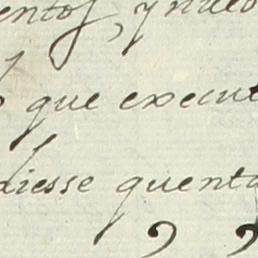 entos, y nueo
que execut
diesse quenta